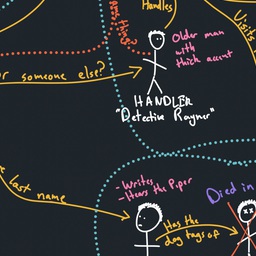 Handles
Visits
Same
thing?
Older man
with
thick accent
or someone else?
HANDLER
"Detective Rayner"
e last name
-Writes
-Hears the Piper
Died in
Has the
dog tags of